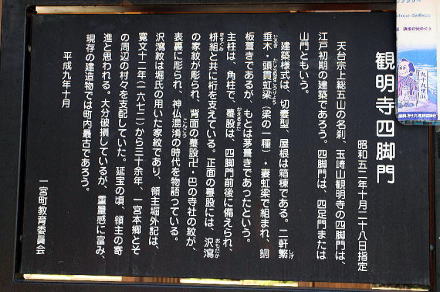 観明寺四脚門
昭和五二年十月二十八日指定
天台宗上総五山の名刹、玉崎山観明寺の四脚門は、
江戸初期の建築であろう。四脚門は、四足門または
山門ともいう。
建築様式は、切妻型、屋根は箱棟である。二軒繁
垂木・頭貫虹梁(梁の一種)・妻虹梁で組まれ、銅
板葺きであるが、もとは茅葺きであったという。
主柱は、角柱で、蟇股は、四脚門前後に備えられ、
枡組と共に桁を支えている。正面の蟇股には、沢瀉
の家紋が彫られ、背面の蟇股卍・巴の寺社の紋が、
表裏に彫られ、神仏混淆の時代を物語っている。
沢瀉紋は堀氏の用いた家紋であり、領主堀外記は、
寛文十二年(一六七二)から三十余年、一宮本郷とそ
の周辺の村々を支配していた。延宝の頃、領主の寄
進と思われる。大分破損しているが、重量感に富み、
現存の建造物では町内最古であろう。
平成九年十月
一宮町教育委員会